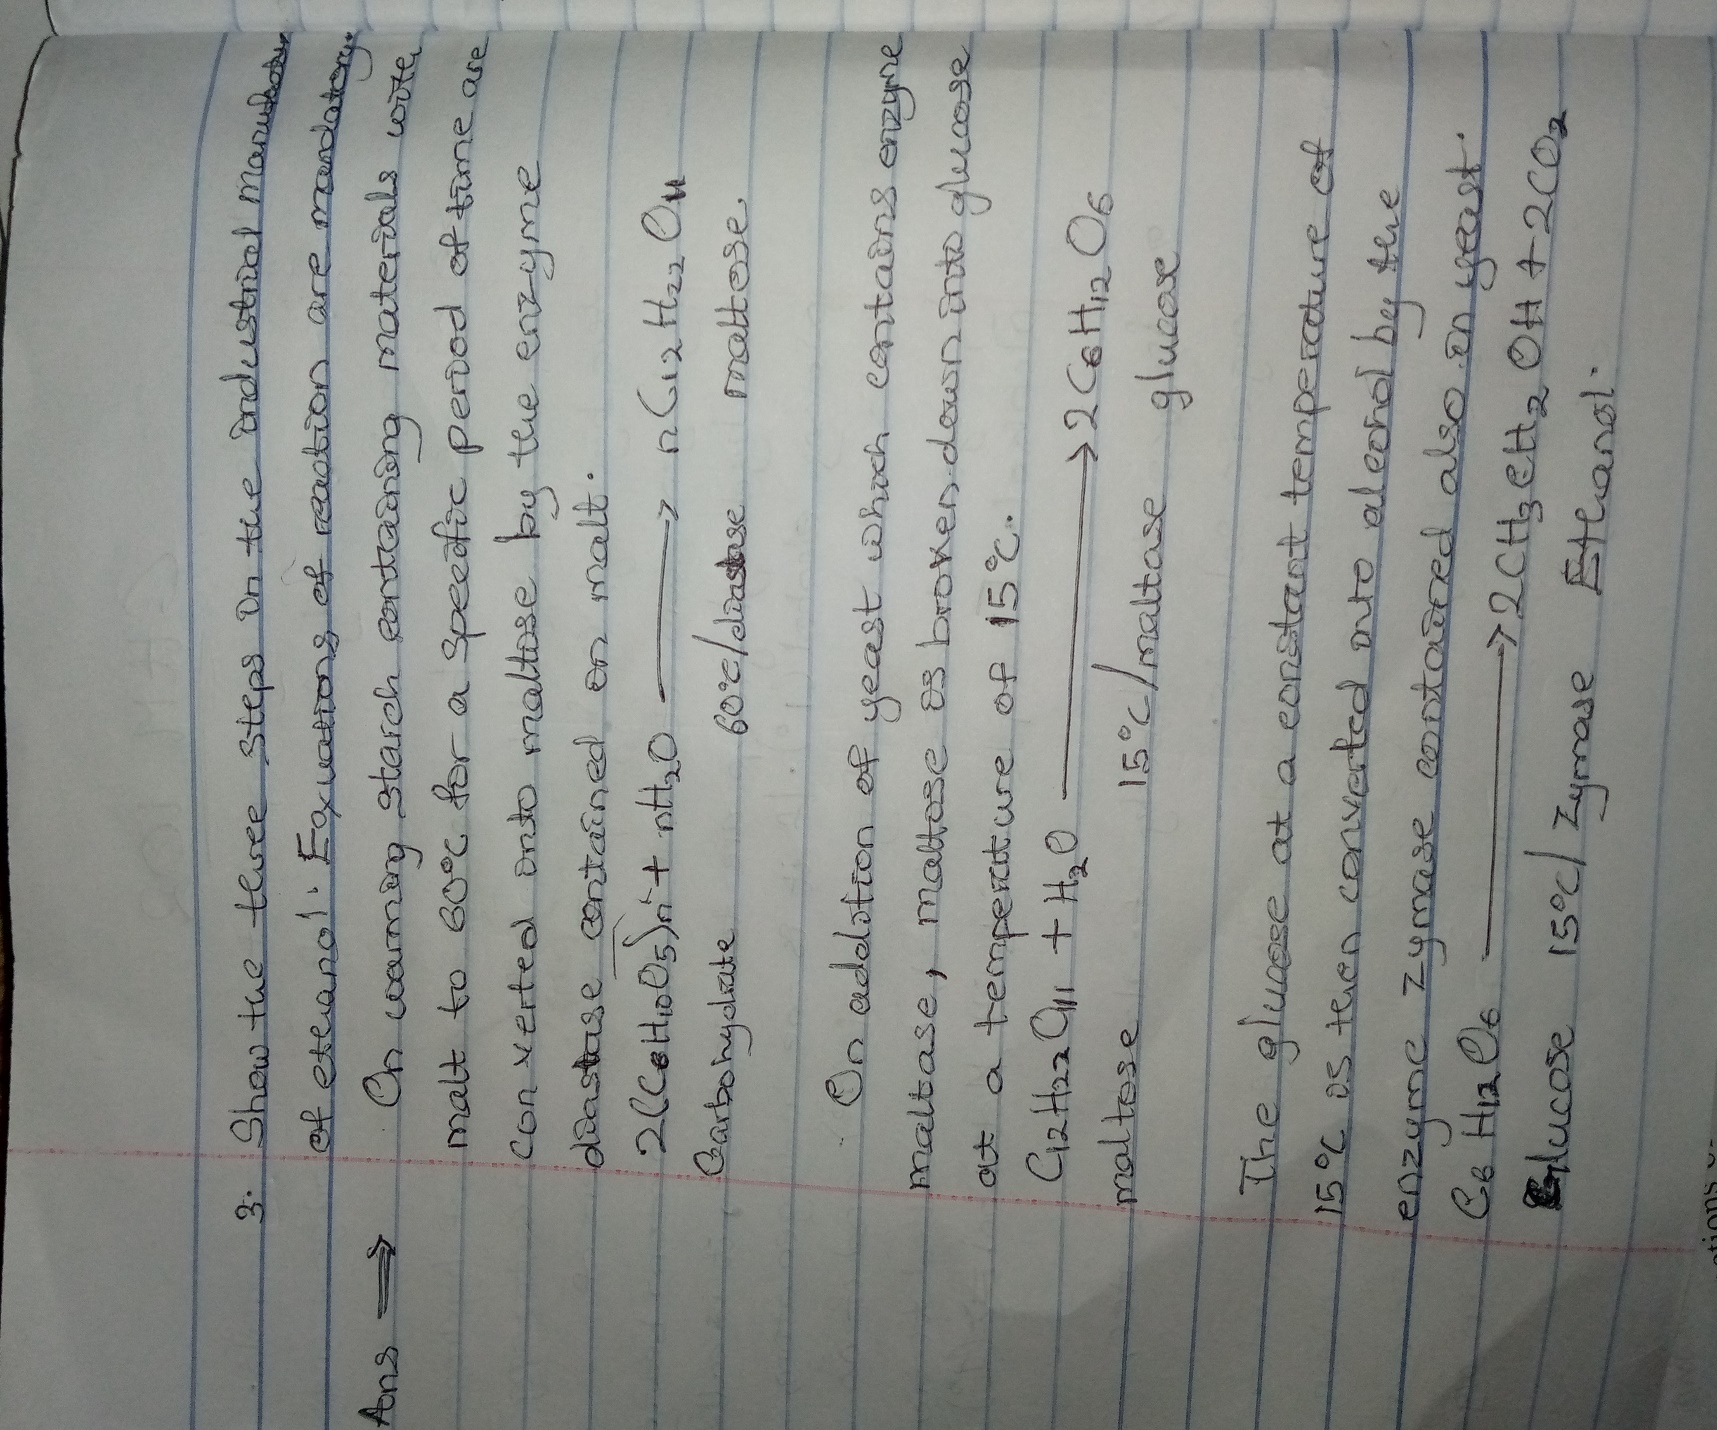 3. Show the three steps in the industrial manufactur
of ethanol. Equations of reaction are mandatory.
Ans ⇒ On warming starch containing materials with
malt to 60°C for a specific period of time are
converted into maltose by the enzyme
diastase contained in malt.
2(C6H10O5)n + nH2O ⟶ nC12H22O11
Carbohydrate 60°C/diastase maltose
On addition of yeast which contains enzyme
maltase, maltose is broken down into glucose
at a temperature of 15°C.
C12H22O11 + H2O ⟶ 2C6H12O6
maltose 15°C/maltase glucose
The glucose at a constant temperature of
15°C is then converted into alcohol by the
enzyme zymase contained also in yeast.
C6H12O6 ⟶ 2CH3CH2OH + 2CO2
Glucose 15°C/Zymase Ethanol.